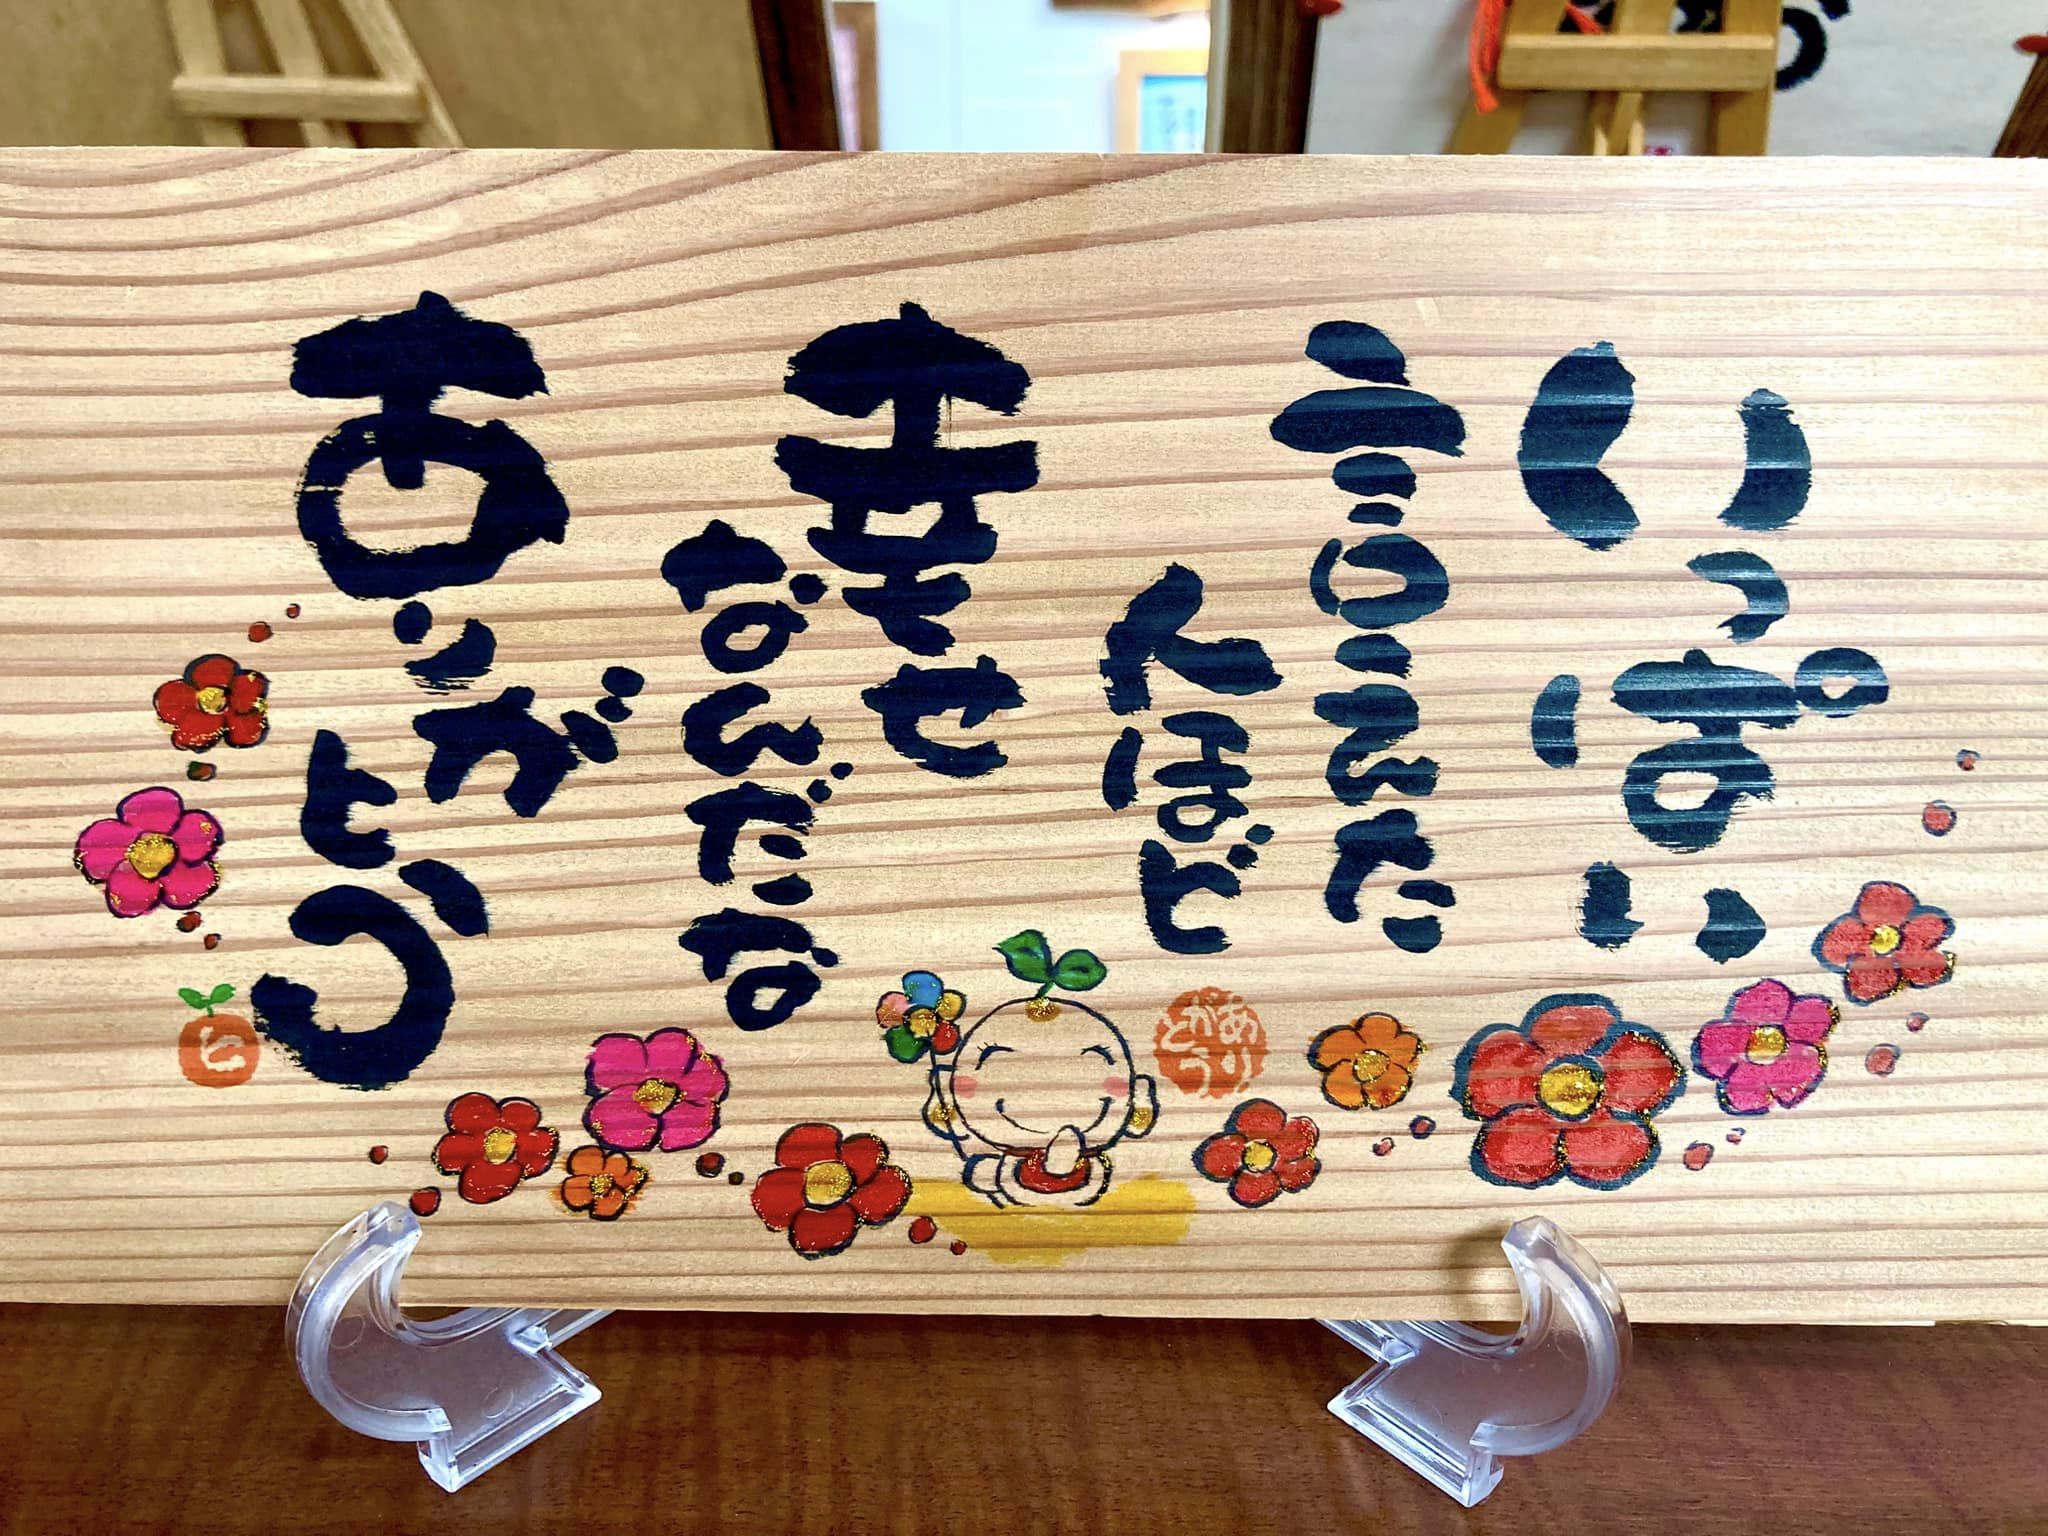 いっぱい
言えた
人ほど
幸せ
なんだな
ありがとう
ありがとう